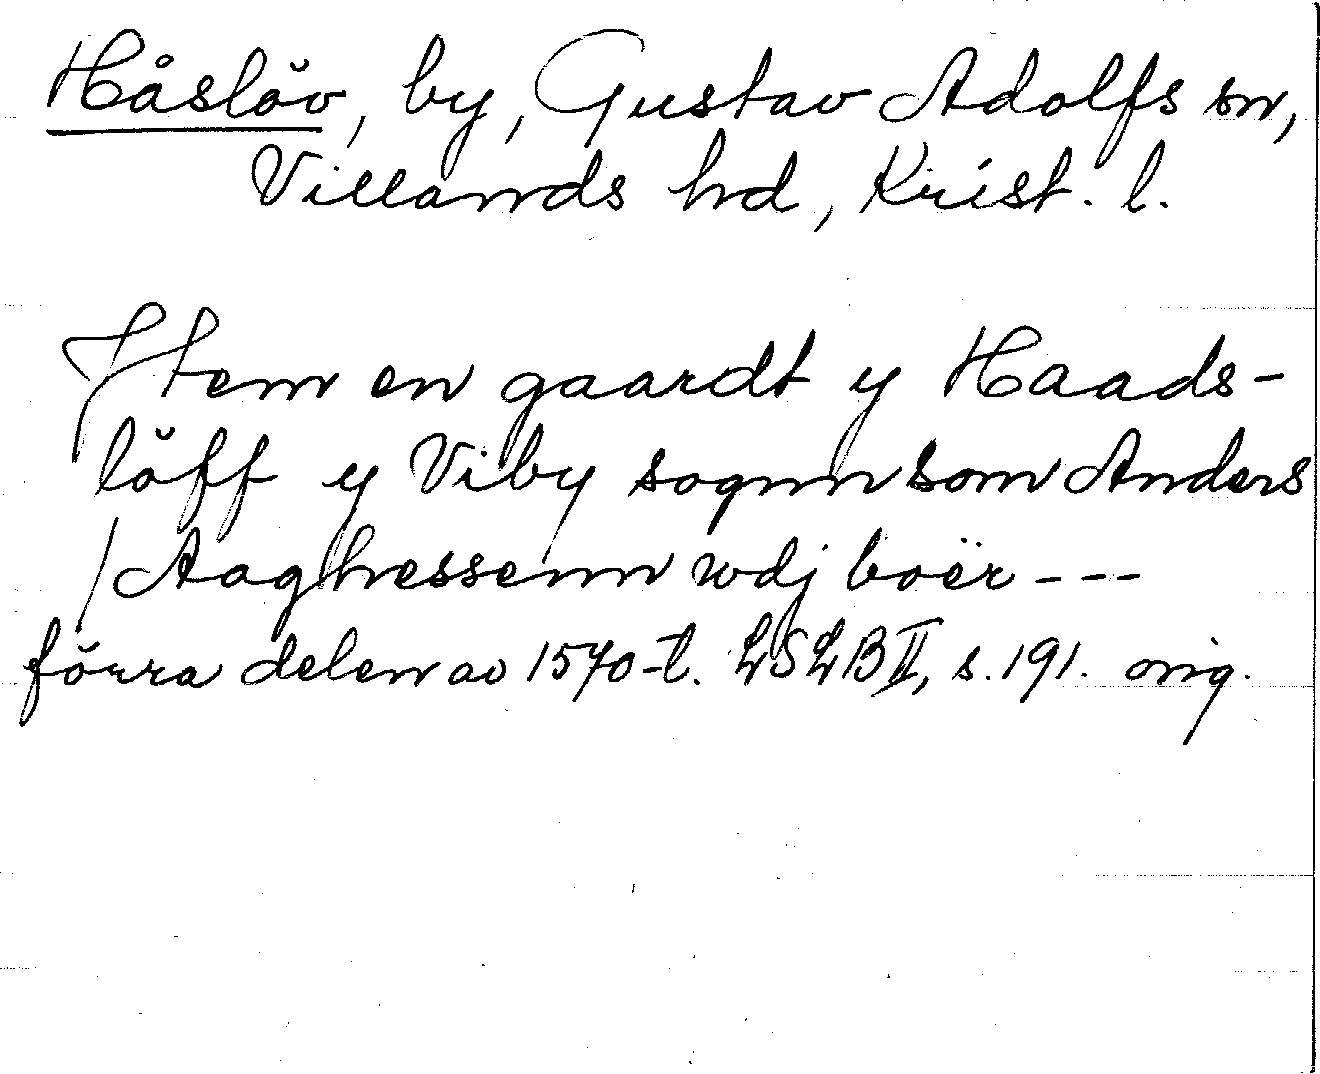 Håslöv, by, Gustav Adolfs sn,
Villands hd, Krist. l.
Item en gaardt y Haads-
löff y Viby sognn som Anders
Aaghessenn wdj boër ---
förra delen av 1570-t. LSLB II, s. 191. orig.